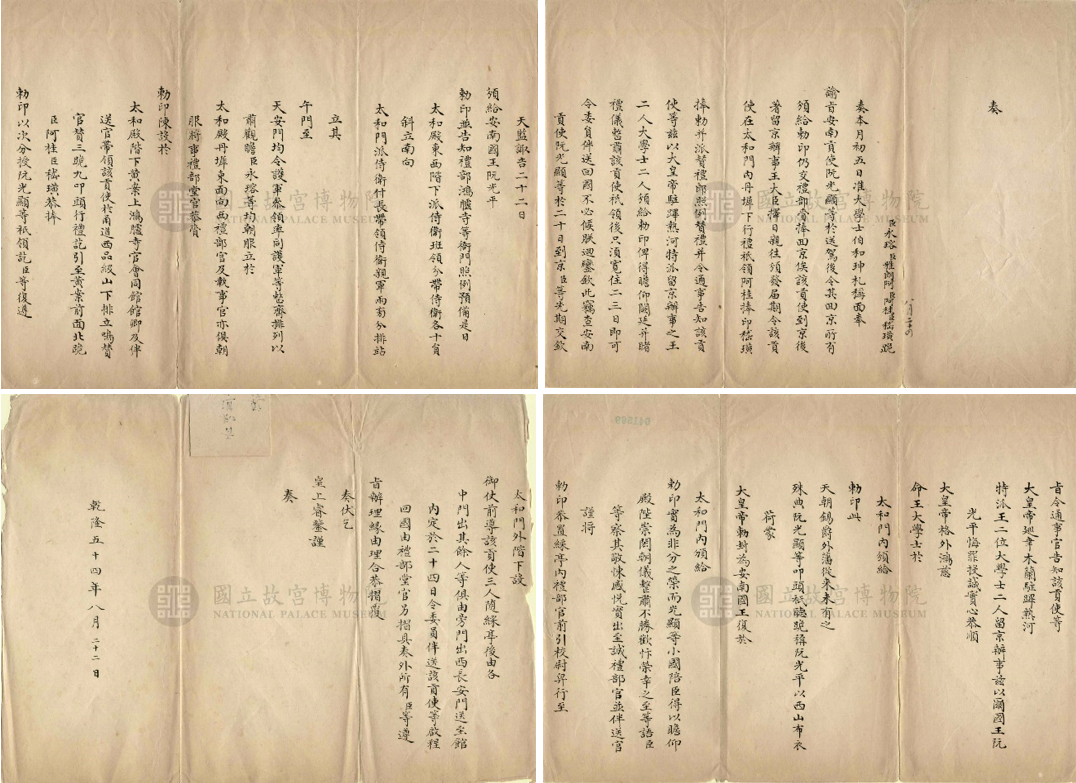 奏
八月二十四
臣永瑢臣雅朗阿臣阿桂臣嵇璜跪
奏本月初五日准大學士伯和珅札稱面奉
諭旨安南貢使阮光顯等於送駕後令其回京所有
頒給勅印仍交禮部賫捧回京俟該貢使到京後
著留京辦事王大臣擇日親往頒發屆期令該貢
使在太和門內丹墀下行禮祗領阿桂捧印嵇璜
捧勅并派贊禮郎照例贊禮并令通事告知該貢
使等茲以大皇帝駐蹕熱河特派留京辦事之王
二人大學士二人頒給勅印俾得瞻仰闕廷并睹
禮儀整肅該貢使祗領後只須寬住二三日即可
令委員伴送回國不必候朕迴鑾欽此竊查安南
貢使阮光顯等於二十日到京臣等先期交欽
天監諏吉二十二日
頒給安南國王阮光平
勅印並告知禮部鴻臚寺等衙門照例預備是日
太和殿東西階下派侍衛班領分帶侍衛各十員
斜立南向
太和門派侍衛什長帶領侍衛親軍兩旁分排站
立其
午門至
天安門均令護軍叅領率同護軍等整齊排列以
肅觀瞻臣永瑢等均朝服立於
太和殿丹墀東面向西禮部官及執事官亦俱朝
服將事禮部堂官恭賫
勅印陳設於
太和殿階下黃案上鴻臚寺官會同館館卿及伴
送官帶領該貢使於甬道西品級山下排立鳴贊
官贊三跪九叩頭行禮訖引至黃案前面北跪
臣阿桂臣嵇璜恭捧
勅印以次分授阮光顯等祗領訖臣等復遵
旨令通事官告知該貢使等
大皇帝廵幸木蘭駐蹕熱河
特派王二位大學士二人留京辦事茲以爾國王阮
光平悔罪投誠實心恭順
大皇帝格外鴻慈
命王大學士於
太和門內頒給
勅印此
天朝錫爵外藩從來未有之
殊典阮光顯等叩頭祗聽跪稱阮光平以西山布衣
荷蒙
大皇帝勅封為安南國王復於
太和門內頒給
勅印實為非分之榮而光顯等小國陪臣得以瞻仰
殿陛崇閎朝儀整肅不勝歡忭榮幸之至等語臣
等察其敬悚感悅實出至誠禮部官並伴送官
謹將
勅印恭置綵亭內禮部官前引校尉舁行至
太和門外階下設
御仗前導該貢使三人隨綵亭後由各
中門出其餘人等俱由旁門出西長安門送至館
內定於二十四日令委員伴送該貢使等啟程
回國由禮部堂官另摺具奏外所有臣等遵
旨辦理緣由理合恭摺覆
奏伏乞
皇上睿鑒謹
奏
乾隆五十四年八月二十二日
國立故宮博物院
NATIONAL PALACE MUSEUM
國立故宮博物院
NATIONAL PALACE MUSEUM
國立故宮博物院
NATIONAL PALACE MUSEUM
國立故宮博物院
NATIONAL PALACE MUSEUM